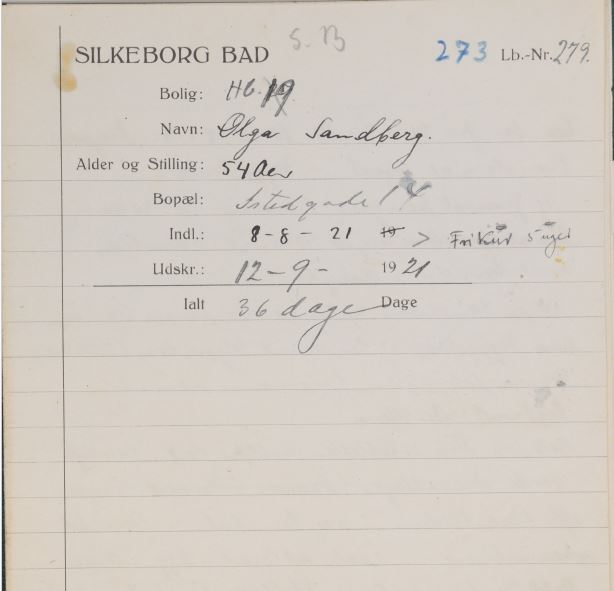 SILKEBORG BAD S. B 273 Lb.-Nr. 279.
Bolig: HB. 19
Navn: Olga Sandberg.
Alder og Stilling: 54 Aar
Bopæl: Istedgade 14
Indl.: 8-8-21 19 > Fri Kur 5 uger
Udskr.: 12-9- 1921
Ialt 36 dage Dage